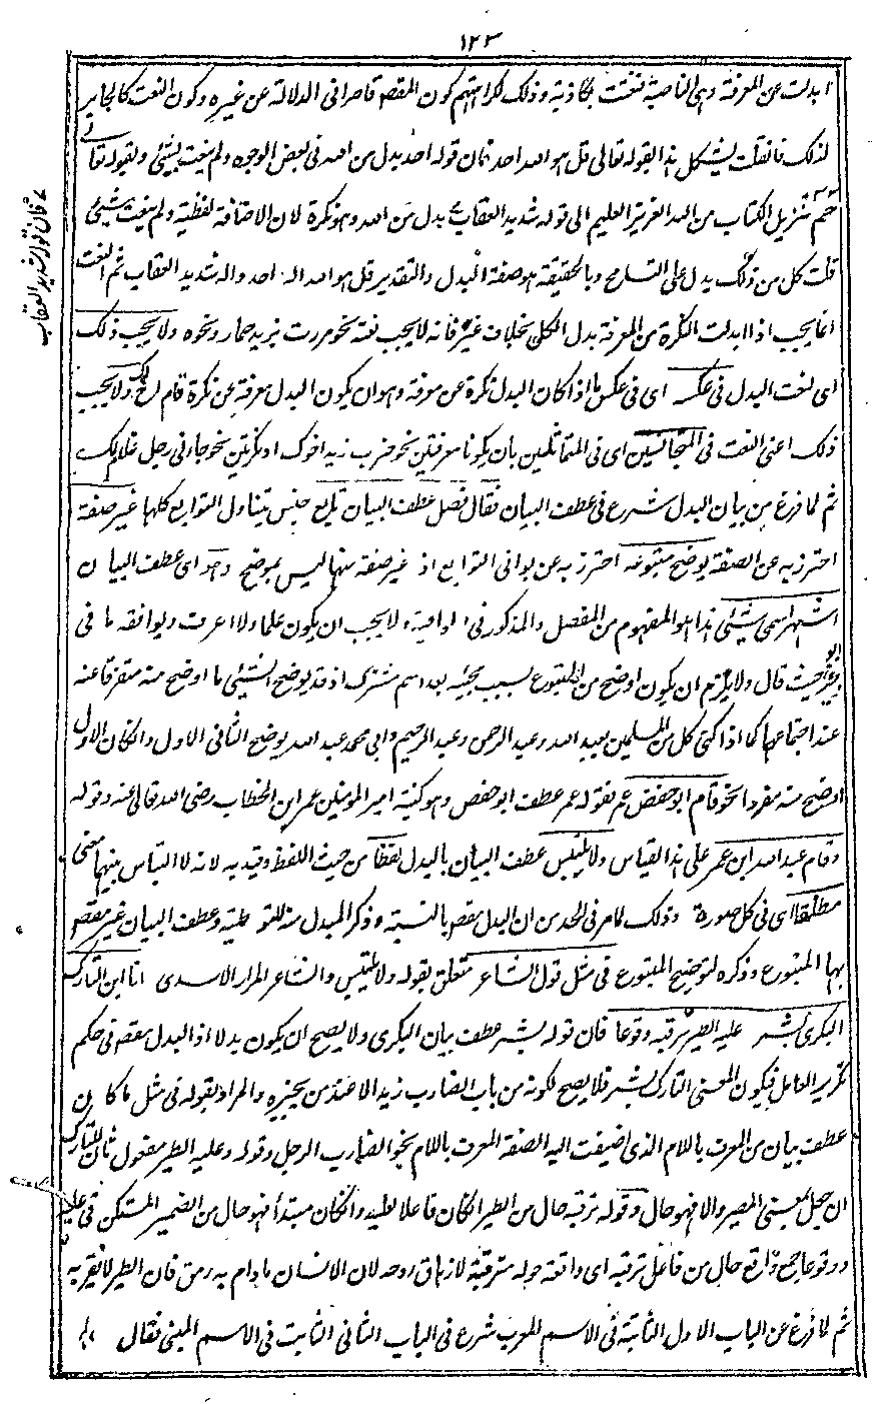 ١٢٣
ابدلت عن المعرفة وهى الناصية فنعتت بكاذبة وذلك لكراهتهم كون المقصو قاصرا فى الدلالة عن غيره وكون النعت كالجابر
لذلك فانقلت يشكل هذا بقوله تعالى قل هو الله احد فان قوله احد بدل من الله فى بعض الوجوه ولم ينعت بشيئ وبقوله تعالى
حم تنزيل الكتاب من الله العزيز العليم الى قوله شديد العقاب بدل من الله وهو نكرة لان الاضافة لفظية ولم ينعت بشيئ
قلت كل من ذلك بدل على التسامح وبالحقيقة هو صفة البدل والتقدير قل هو الله اله احد واله شديد العقاب ثم النعت
انما يجب اذا ابدلت النكرة من المعرفة بدل الكل بخلاف غيره فانه لا يجب نعته نحو مررت بزيد حمار ونحوه ولا يجب ذلك
اى نعت البدل فى عكسه اى فى عكس ما اذا كان البدل نكرة عن معرفة وهو ان يكون البدل معرفة عن نكرة قام اخ لك ولا يجب
ذلك اعنى النعت فى المتجانسين اى فى المتماثلين بان يكونا معرفتين نحو ضرب زيد اخوك او نكرتين نحو جاءنى رجل غلام لك
ثم لما فرغ من بيان البدل شرع فى عطف البيان فقال فصل عطف البيان تابع جنس يتناول التوابع كلها غير صفة
احترز به عن الصفة يوضح متبوعه احترز به عن بواقى التوابع اذ غير صفة منها ليس بموضح وهو اى عطف البيان
اشهر اسمى شيئ هذا هو المفهوم من المفصل والمذكور فى الوافية ولا يجب ان يكون علما ولا اعرف ويوافقه ما فى
غيره حيث قال ولا يلزم ان يكون اوضح من المتبوع بسبب مجيئه بعد اسم مشترك اذ قد يوضح الشيئ ما اوضح منه متفرقا عنه
عند اجتماعها كما اذا كنى كل من المسلمين بعبد الله وعبد الرحمن وعبد الرحيم وابى محمد عبد الله يوضح الثانى الاول والكان الاول
اوضح منه مفردا نحو قام ابو حفص عمر فقوله عمر عطف ابو حفص وهو كنية امير المومنين عمر ابن الخطاب رضى الله تعالى عنه وقوله
وقام عبد الله ابن عمر على هذا القياس ولا يلتبس عطف البيان بالبدل لفظا من حيث اللفظ وقيد به لانه لا التباس بينهما معنى
مطلقا اى فى كل صورة وذلك لما مر فى الحد من ان البدل مقصو بالنسبة وذكر المبدل منه للتوطية وعطف البيان غير مقصو
بها المتبوع وذكره لتوضيح المتبوع فى مثل قول الشاعر متعلق بقوله ولا يلتبس والشاعر المرار الاسدى انا ابن التارك
البكرى بشر عليه الطير ترقبه وقوعا فان قوله بشر عطف بيان البكرى ولا يصح ان يكون بدلا اذ البدل مقصو فى حكم
تكرير العامل فيكون المعنى التارك بشر فلا يصح لكونه من باب الضارب زيد الا عند من يجيزه والمراد بقوله فى مثل ما كان
عطف بيان من المعرف باللام الذى اضيفت اليه الصفة المعرف باللام نحو الضارب الرجل وقوله وعليه الطير مفعول ثان للتارك
ان جعل بمعنى المصير والا فهو حال وقوله ترقبه حال من الطير الكان فاعلا لعليه والكان مبتدأ فهو حال من الضمير المستكن فى عليه
ووقوعا جمع واقع حال من فاعل ترقبه اى واقعة حوله مترقبة لازهاق روحه لان الانسان مادام به رمق فان الطير لا تقربه
ثم لما فرغ عن الباب الاول الثابتة فى الاسم المعرب شرع فى الباب الثانى الثابت فى الاسم المبنى فقال
فان قوله شديد العقاب